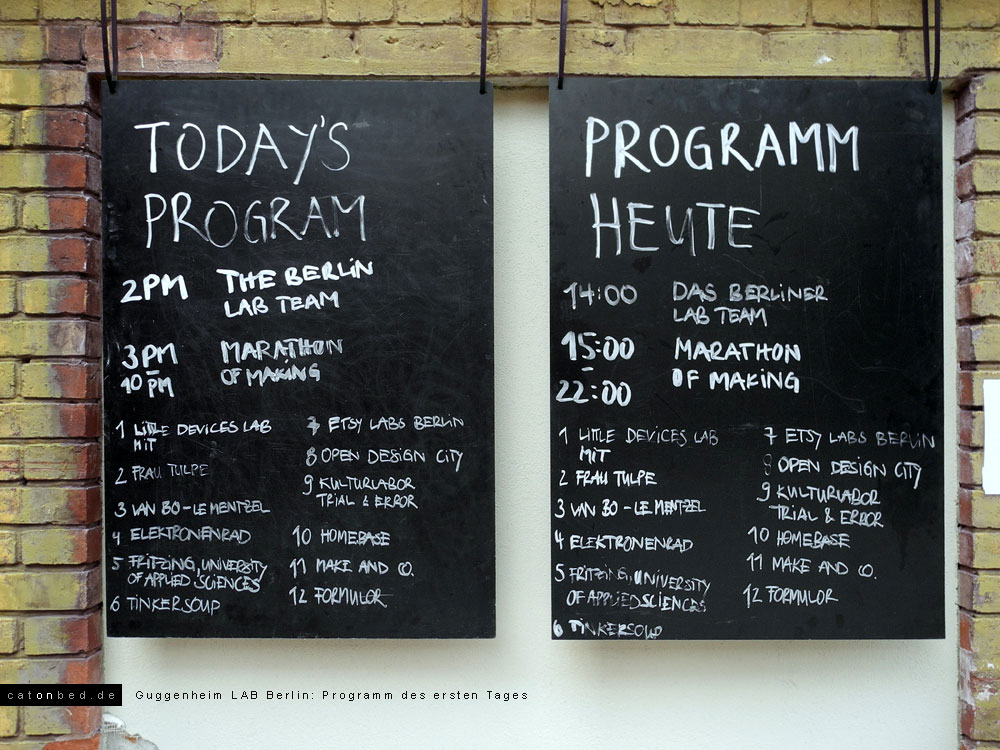 TODAY'S
PROGRAM
2PM THE BERLIN
LAB TEAM
3PM MARATHON
– OF MAKING
10PM
1 LITTLE DEVICES LAB
MIT
2 FRAU TULPE
3 VAN BO - LE MENTZEL
4 ELEKTRONENRAD
5 FRITZING, UNIVERSITY
OF APPLIED SCIENCES
6 TINKERSOUP
7 ETSY LABS BERLIN
8 OPEN DESIGN CITY
9 KULTURLABOR
TRIAL & ERROR
10 HOMEBASE
11 MAKE AND CO.
12 FORMULOR
PROGRAMM
HEUTE
14:00 DAS BERLINER
LAB TEAM
15:00 MARATHON
– OF MAKING
22:00
1 LITTLE DEVICES LAB
MIT
2 FRAU TULPE
3 VAN BO - LE MENTZEL
4 ELEKTRONENRAD
5 FRITZING, UNIVERSITY
OF APPLIED SCIENCES
6 TINKERSOUP
7 ETSY LABS BERLIN
8 OPEN DESIGN CITY
9 KULTURLABOR
TRIAL & ERROR
10 HOMEBASE
11 MAKE AND CO.
12 FORMULOR
catonbed.de Guggenheim LAB Berlin: Programm des ersten Tages